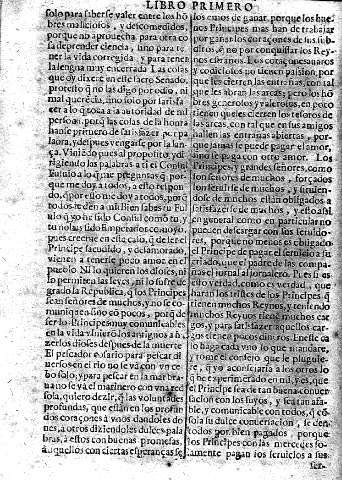 LIBRO PRIMERO
solo para saberse valer entre los hõ
bres maliciosos, y descomedidos,
porque no aprouecha para otra co
sa deprender ciencia, sino para te
ner la vida corregida, y para tener
la lengua muy encerrada. Las cosas
que oy dixere en este sacro Senado,
protesto q̃ no las digo por odio, ni
mal querencia, sino solo por satisfa
zer a lo q̃ toca a la autoridad de mi
persona, porq̃ las cosas de la honra
hanse primero de satisfazer por pa
labra, y despues vengarse por la lan
ça. Viniendo pues al proposito, y di
rigiendo las palabras a ti el Consul
Fuluio a lo q̃ me preguntas
que me doy a todos, a esto respon
do, q̃ por esso me doy a todos, porq̃
todos se den a mi: bien sabes tu Fu
luio q̃ yo he sido Consul como tu, y
tu no has sido Emperador como yo,
pues creeme en este caso, q̃ de ser el
Principe sacudido, y desamorado,
vienen a tenerle poco amor en el
pueblo. Ni lo quieren los dioses, ni
lo permiten las leyes, ni lo sufre de
grado la Republica, q̃ los Principes
sean señores de muchos, y no se co
muniquen sino cõ pocos, porq̃ de
ser los Principes muy comunicables
en la vida vinieron los antiguos a ha
zerlos dioses despues de la muerte
El pescador cosario para pescar di
uersos en el rio no se vâ con ce
bo solo, y para pescar en la mar bra
ua no se vâ el marinero con vna red
sola, quiero dezir, q̃ las voluntades
profundas, que estan en los profun
dos coraçones a vnos dandoles do
nes, a otros diziendoles dulces pala
bras, a estos con buenas promesas,
a aquellos con ciertas esperanças se
los emos de ganar, porque los bue
nos Principes mas han de trabajar
por ganar los coraçones de sus sub
ditos, q̃ no por conquistar los Rey
nos estraños. Los coraçones auaros
y codiciosos no tienen passion, por
que les cierren las entrañas, con tal
que les abran las arcas; pero los hõ
bres generosos y valerosos, en poco
tienen queles cierren los tesoros de
las arcas, con tal que en sus amigos
hallen las entrañas abiertas, por-
que jamas se puede pagar el amor,
sino se paga con otro amor. Los
Principes y grandes señores, como
son señores de muchos, forçados
son seruirse de muchos, y siruien-
dose de muchos estan obligados a
satisfazer que a muchos, y esto assi
en general como en particular no
pueden descargar con sus seruido-
res, porque no menos es obligado
el Principe de pagar el seruicio a su
criado, que el padre de las compa-
ñias el jornal al jornalero. Pues si es-
to es verdad, como es verdad, que
haran los tristes de los Principes q̃
tienen muchos Reynos, y teniendo
muchos Reynos tienẽ muchos car-
gos, y para satisfazer aquellos car-
gos tienen pocos dineros. En este ca
so haga cada vno lo que mandare,
y tome el consejo que le plugui-
re, q̃ yo aconsejaria a los otros lo
que he experimentado en mi, y es, que
el Principe sea de tan buena conuer
sacion con los suyos, y sea tan afa-
ble, y comunicable con todos, q̃ cõ
sola su dulce conuersacion, se den
todos por bien pagados, porque
los Principes con las mercedes so-
lamente pagan los seruicios a sus
ser-